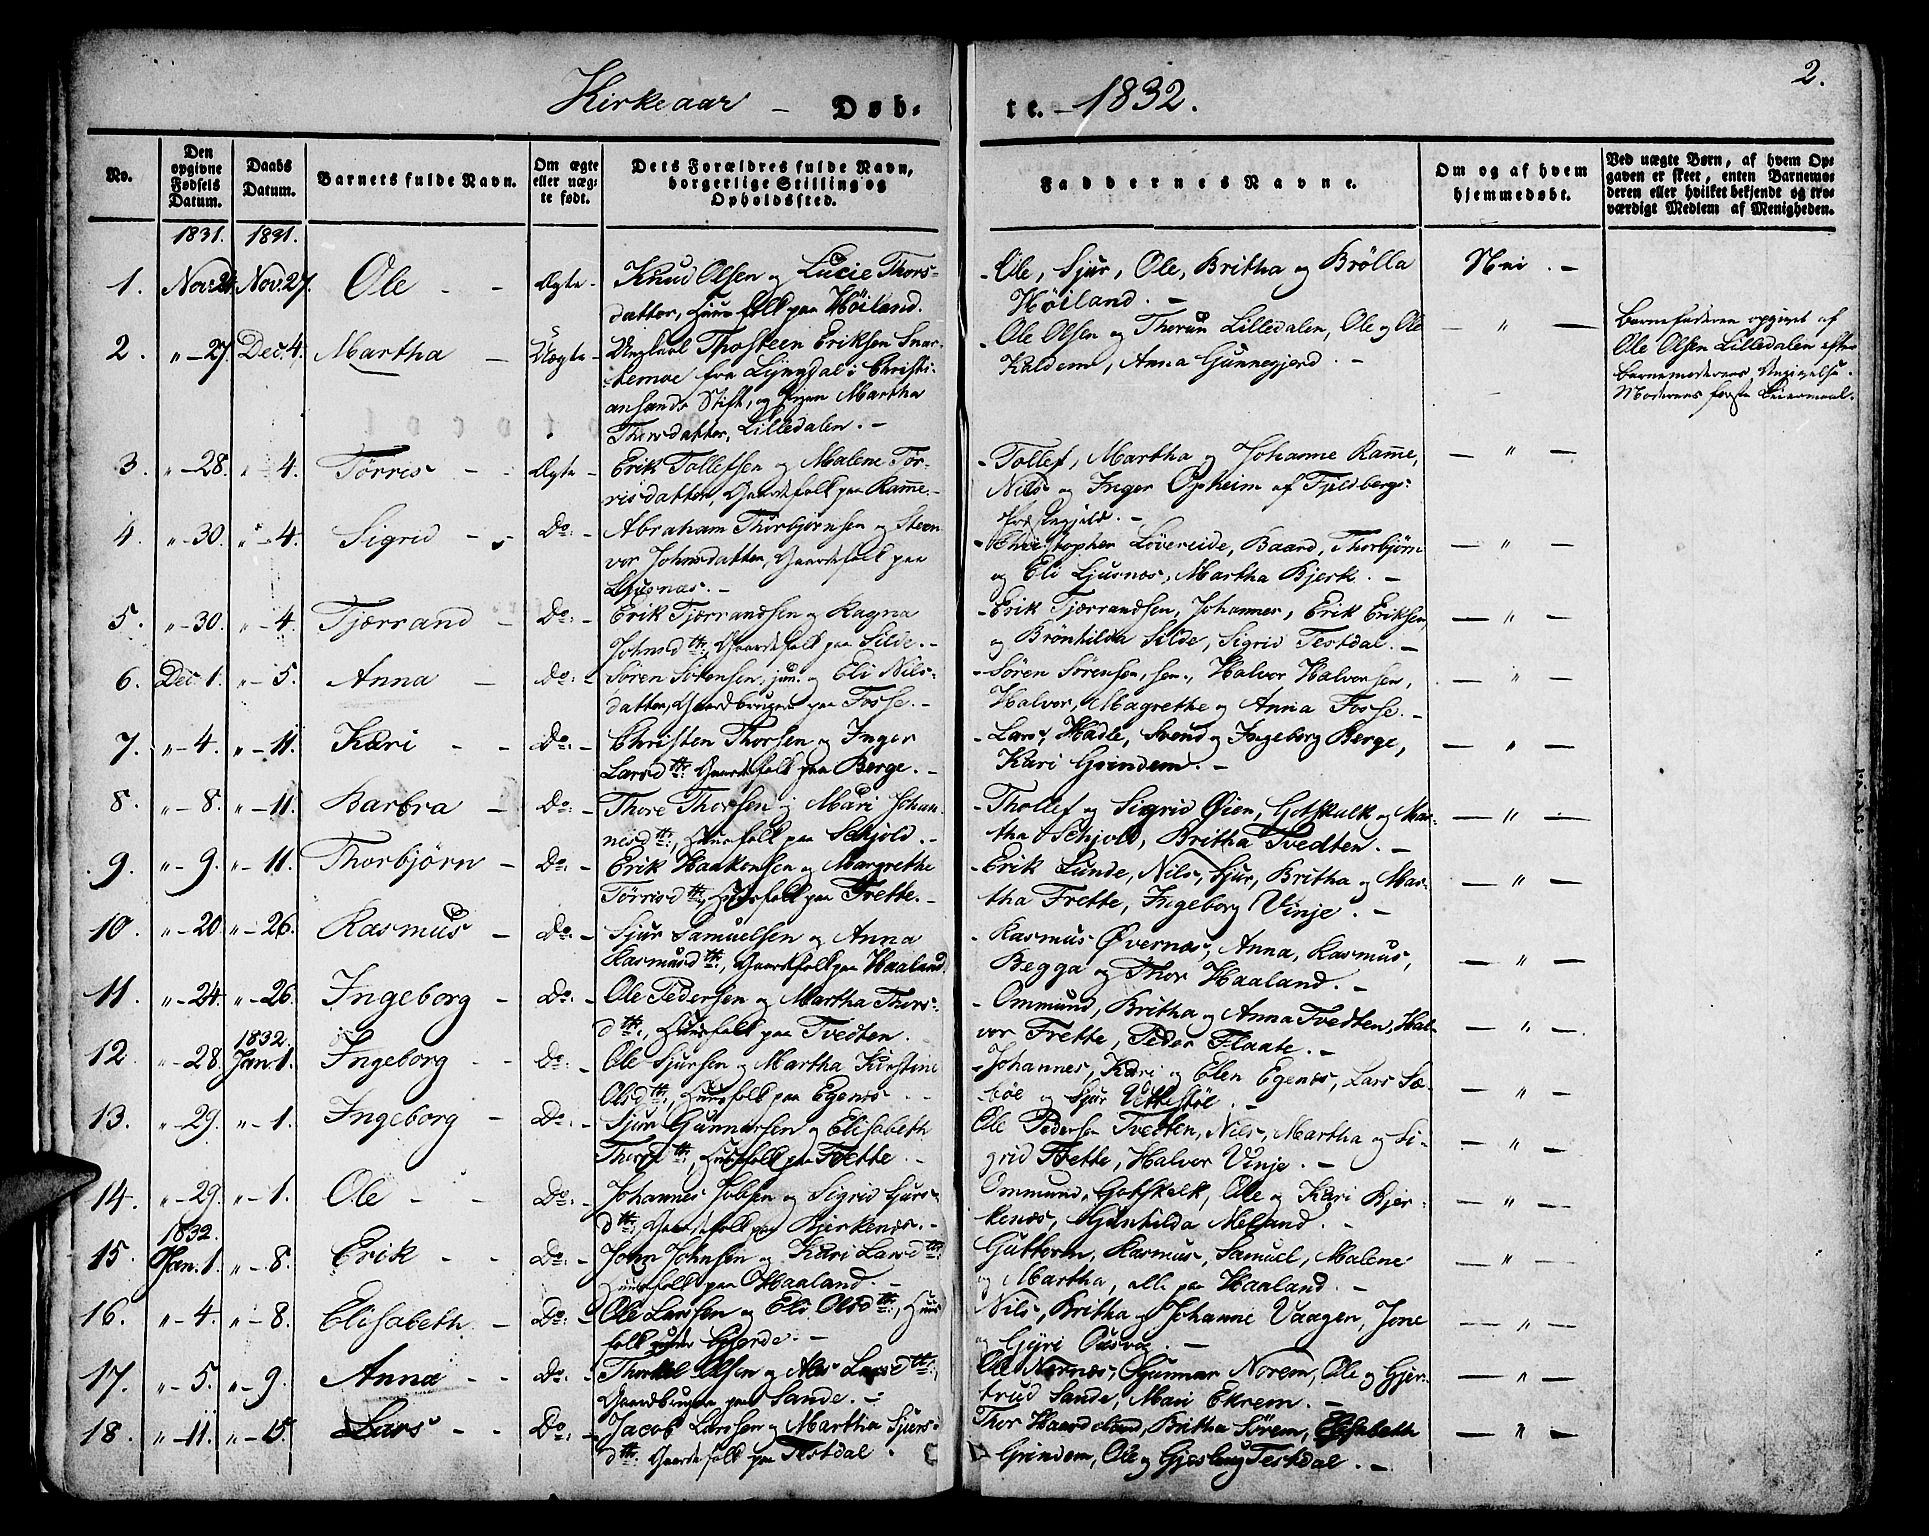 Kirkeaar - Døb:
te. - 1832.
2.
No.
Den opgivne Fødsels Datum.
Daabs Datum.
Barnets fulde Navn.
Om ægte eller uægte født.
Dets Forældres fulde Navn, borgerlige Stilling og Opholdssted.
Faddernes Navne.
Om og af hvem hjemmedøbt.
Ved uægte Børn, af hvem Opgaven er skeet, enten Barnemoderen eller hvilket bekjendt og troværdigt Medlem af Menigheden.
1831. 1831.
1. Nov. 24. Nov. 27. Ole - - Ægte - Knud Olsen og Lucie Thors-
datter, Huusfolk paa Høiland.
- Ole, Sjur, Ole, Britha og Brølla
Høiland. -
Nei. -
2. " - 27. Dec. 4. Martha - Uægte - Ungkarl Thosteen Eriksen Snar-
temoe fra Lyngdal i Christi-
ansands Stift, og Pigen Martha
Thorsdatter, Lilledalen. -
- Ole Olsen og Thorun Lilledalen, Ole og Ole
Kaldem, Anna Gunnegjerd. -
- " -
Barnefaderen opgivet af
Ole Olsen Lilledalen efter
Barnemoderens Angivelse.
Moderens første Leiermaal.
3. " - 28. " - 4. Tørres - - Ægte - Erik Tollefsen og Malene Tør-
risdatter, Gaardsfolk paa Ramme. -
- Tollef, Martha og Johanne Ramme,
Nils og Inger Opheim af Fjeldbergs
Præstegjeld. -
- " -
4. " - 30. " - 4. Sigrid - - Do: - Abraham Thorbjørnsen og Steen-
vor Johnsdatter, Gaardsfolk paa
Ljusnæs. -
- Christopher Løvereide, Baard, Thorbjørn
og Eli Ljusnæs, Martha Bjerk. -
- " -
5. " - 30. " - 4. Tjærrand - Do: - Erik Tjærrandsen og Ragna
Johnsdtr: Gaardsfolk paa Silde. -
- Erik Tjærrandsen, Johannes, Erik Eriksen,
og Brønhilda Silde, Sigrid Testdal. -
- " -
6. Dec. 1. " - 5. Anna - Do: - Søren Sørensen, jun. og Eli Nils-
datter, Gaardbrugere paa Fosse. -
- Søren Sørensen, sen., Halvor Halvorsen,
Halvor, Magrethe og Anna Fosse. -
- " -
7. " - 4. " - 11. Kari - - Do: - Christen Thorsen og Inger
Larsdtr: Gaardsfolk paa Berge. -
- Lars, Hadle, Svend og Ingeborg Berge,
Kari Grindem. -
- " -
8. " - 8. " - 11. Barbra - Do: - Thore Thorsen og Mari Johan-
nesdtr:, Huusfolk paa Schjold. -
- Thollef og Sigrid Øien, Gotskalk og Mar-
tha Schjold, Britha Tvedten. -
- " -
9. " - 9. " - 11. Thorbjørn - Do: - Erik Haakonsen og Margrethe
Tørrisdtr:, Huusfolk paa Frette. -
- Erik Lunde, Nils, Sjur, Britha og Mar-
tha Frette, Ingeborg Vinje. -
- " -
10. " - 20. " - 26. Rasmus - Do: - Sjur Samuelsen og Anna
Rasmusdtr:, Gaardsfolk paa Haaland.
- Rasmus Øvernæs, Anna, Rasmus,
Begga og Thor Haaland. -
- " -
11. " - 24. " - 26. Ingeborg - Do: - Ole Pedersen og Martha Thors-
dtr:, Huusfolk paa Tvedten. -
- Ommund, Britha og Anna Tvedten, Hal-
vor Frette, Peder Flaate. -
- " -
1832.
12. " - 28. Jan. 1. Ingeborg - Do: - Ole Sjursen og Martha Kirstine
Olsdtr:, Huusfolk paa Egenæs. -
- Johannes, Kari og Elen Egenæs, Lars Sæ-
bøe og Sjur Vittestøl. -
- " -
13. " - 29. " - 1. Ingeborg - Do: - Sjur Gunnarsen og Elisabeth
Thorsdtr:, Huusfolk paa Frette. -
Ole Pedersen Tvedten, Nils, Martha og Si-
grid Frette, Halvor Vinje. -
- " -
14. " - 29. " - 1. Ole - - Do: - Johannes Jobsen og Sigrid Sjurs-
dtr:, Gaardsfolk paa Bjerkenæs. -
Ommund, Gotskalk, Ole og Kari Bjer-
kenæs, Gunhilda Meland. -
- " -
1832.
15. Jan. 1. " - 8. Erik - Do: - John Johnsen og Kari Larsdtr:
Huusfolk paa Haaland. -
Guttorm, Rasmus, Samuel, Malene
og Martha, alle paa Haaland. -
" -
16. " - 4. " - 8. Elisabeth - Do: - Ole Larssen og Eli Olsdtr:, Huus-
folk under Gjerde. -
Nils, Britha og Johanne Vaagen, Jone
og Gjyri Ousvog. -
- " -
17. " - 5. " - 9. Anna - - Do: - Thorkel Olsen og Larsdtr:,
Gaardbrugere paa Sande. -
Ole Nernæs, Gunnar Norem, Ole og Gjer-
trud Sande, Mari Ekrem. -
- " -
18. " - 11. " - 15. Lars - - Do: - Jacob Larssen og Martha Sjurs-
dtr: Gaardsfolk paa Testdal.
Thor Haaland, Britha Sørem, Elisabeth
Grindem, Ole og Gjeslaug Testdal. -
- " -